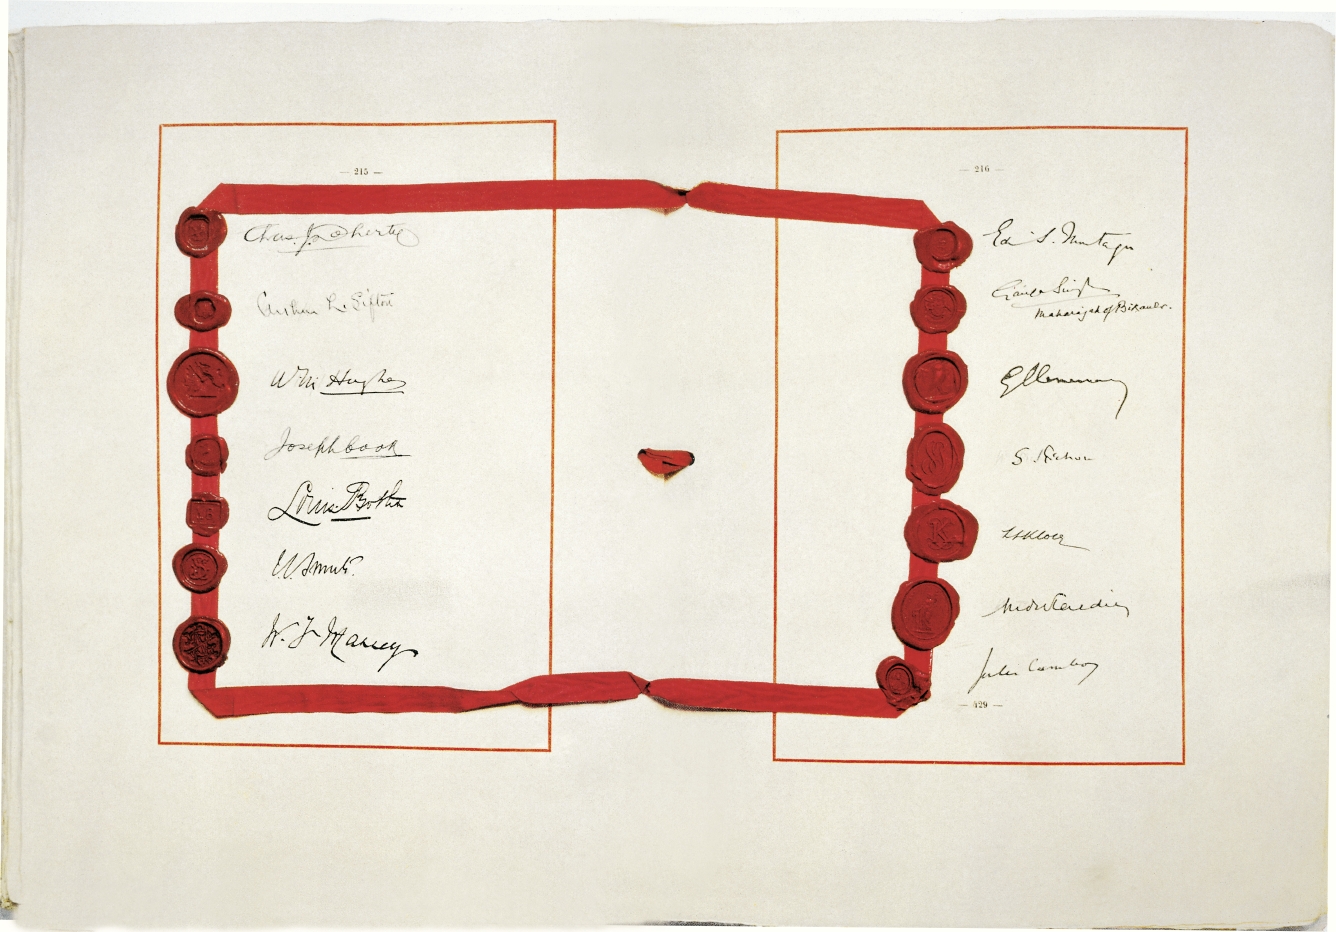 — 215 —
Chas. J. Doherty
Arthur L. Sifton
W M Hughes
Joseph Cook
Louis Botha
J. C. Smuts.
W. F. Massey
— 216 —
Ed. S. Montagu
Ganga Singh
Maharajah of Bikaner.
G Clemenceau
S. Pichon
L L Klotz
André Tardieu
Jules Cambon